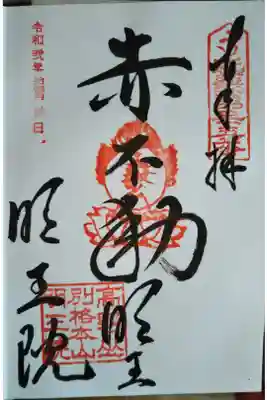 奉拝
赤不動明王
明王院
令和 弐年
高野山
別格本山
明王院